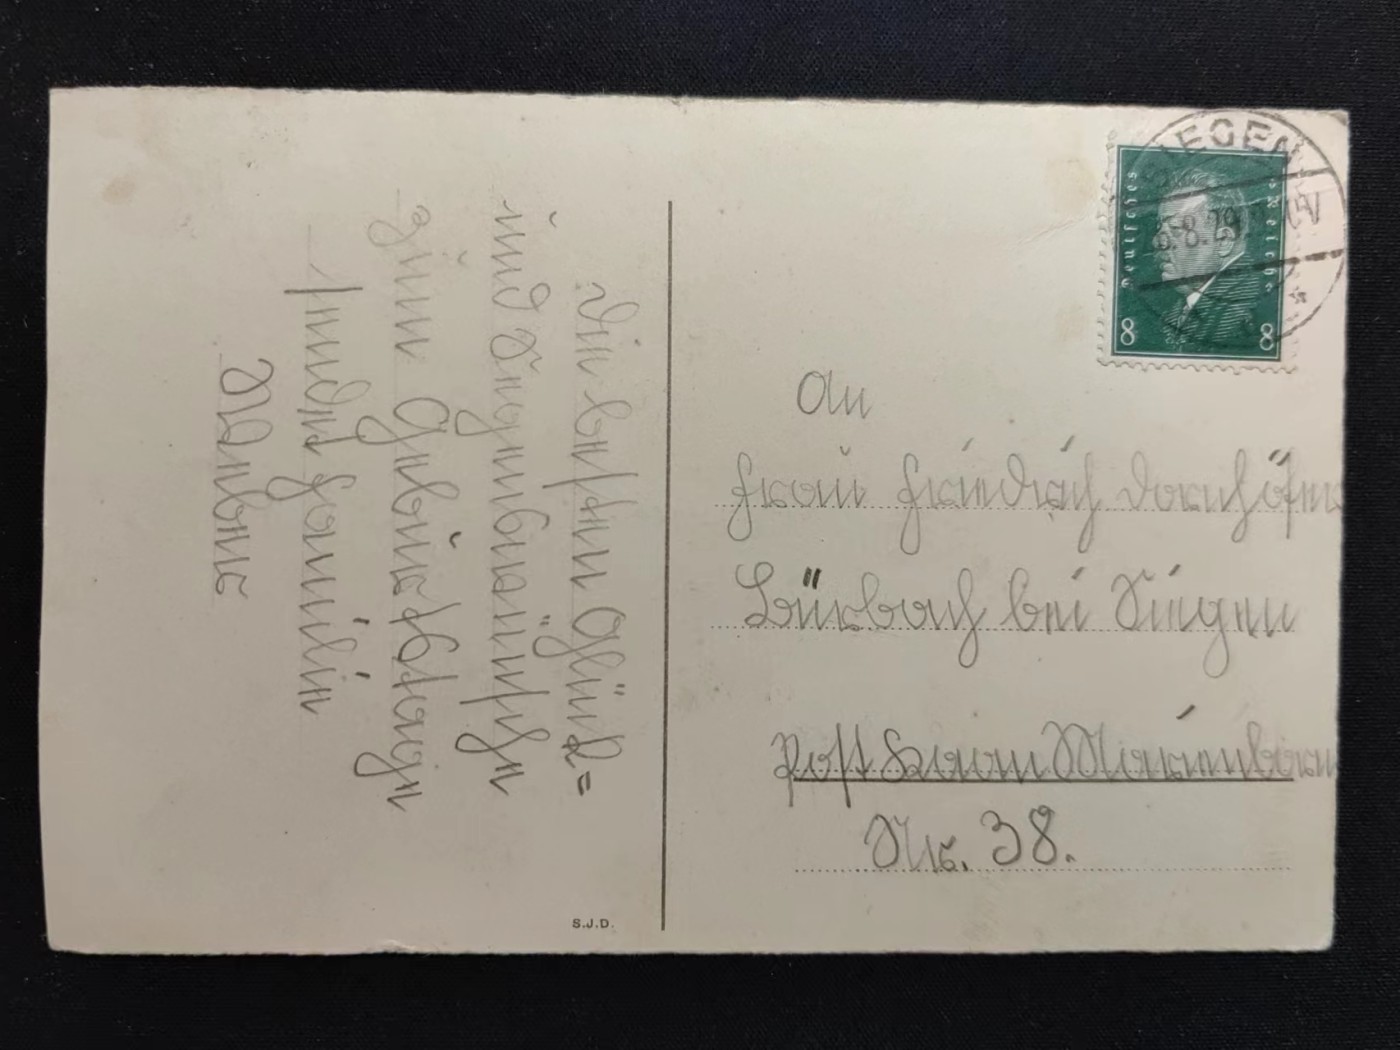 Die besten Glück=
und Segenswünsche
zum Geburtstage
sendet Familie
Weber
S.J.D.
SIEGEN
8.29
Deutsches Reich
8 8
An
Frau Friedrich Dornhöfer
Bürbach bei Siegen
Post Kaan Marienborn
Nr. 38.